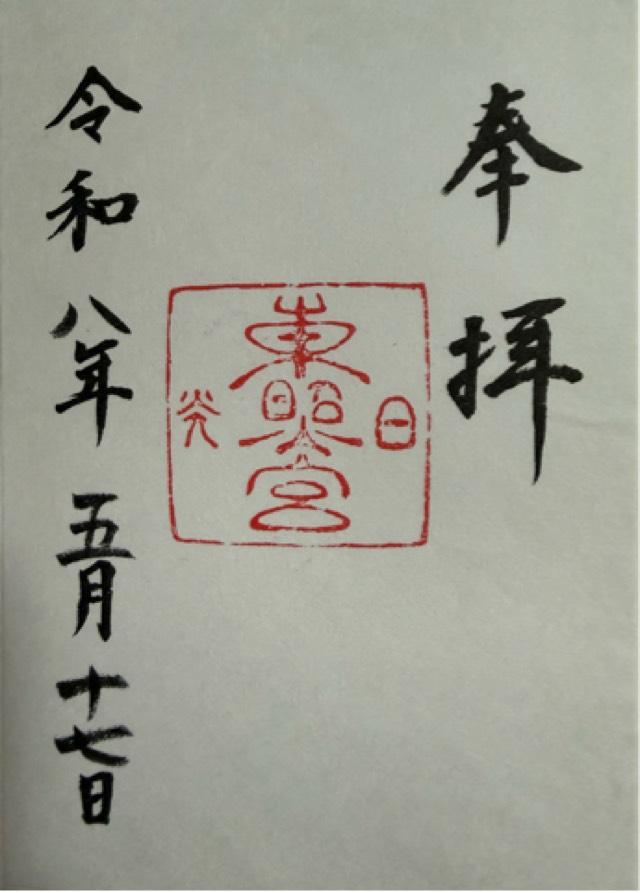 奉拝
日光
東照宮
令和八年五月十七日